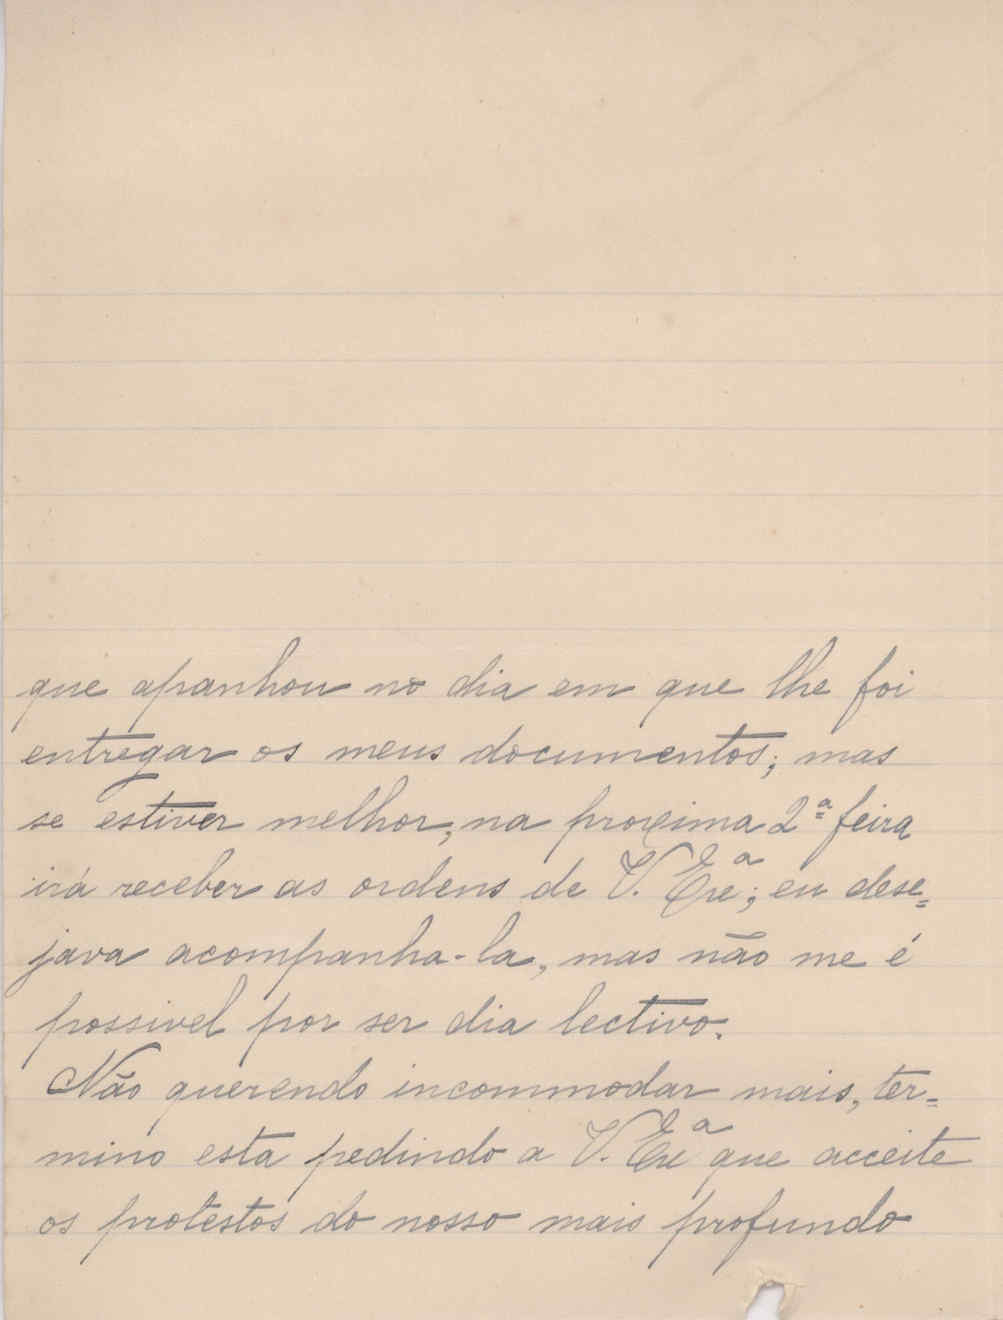 que apanhou no dia em que lhe foi
entregar os meus documentos; mas
se estiver melhor, na proxima 2ª feira
irá receber as ordens de V. Exeª; eu dese=
java acompanha-la, mas não me é
possivel por ser dia lectivo.
Não querendo incommodar mais, ter=
mino esta pedindo a V. Exeª que acceite
os protestos do nosso mais profundo